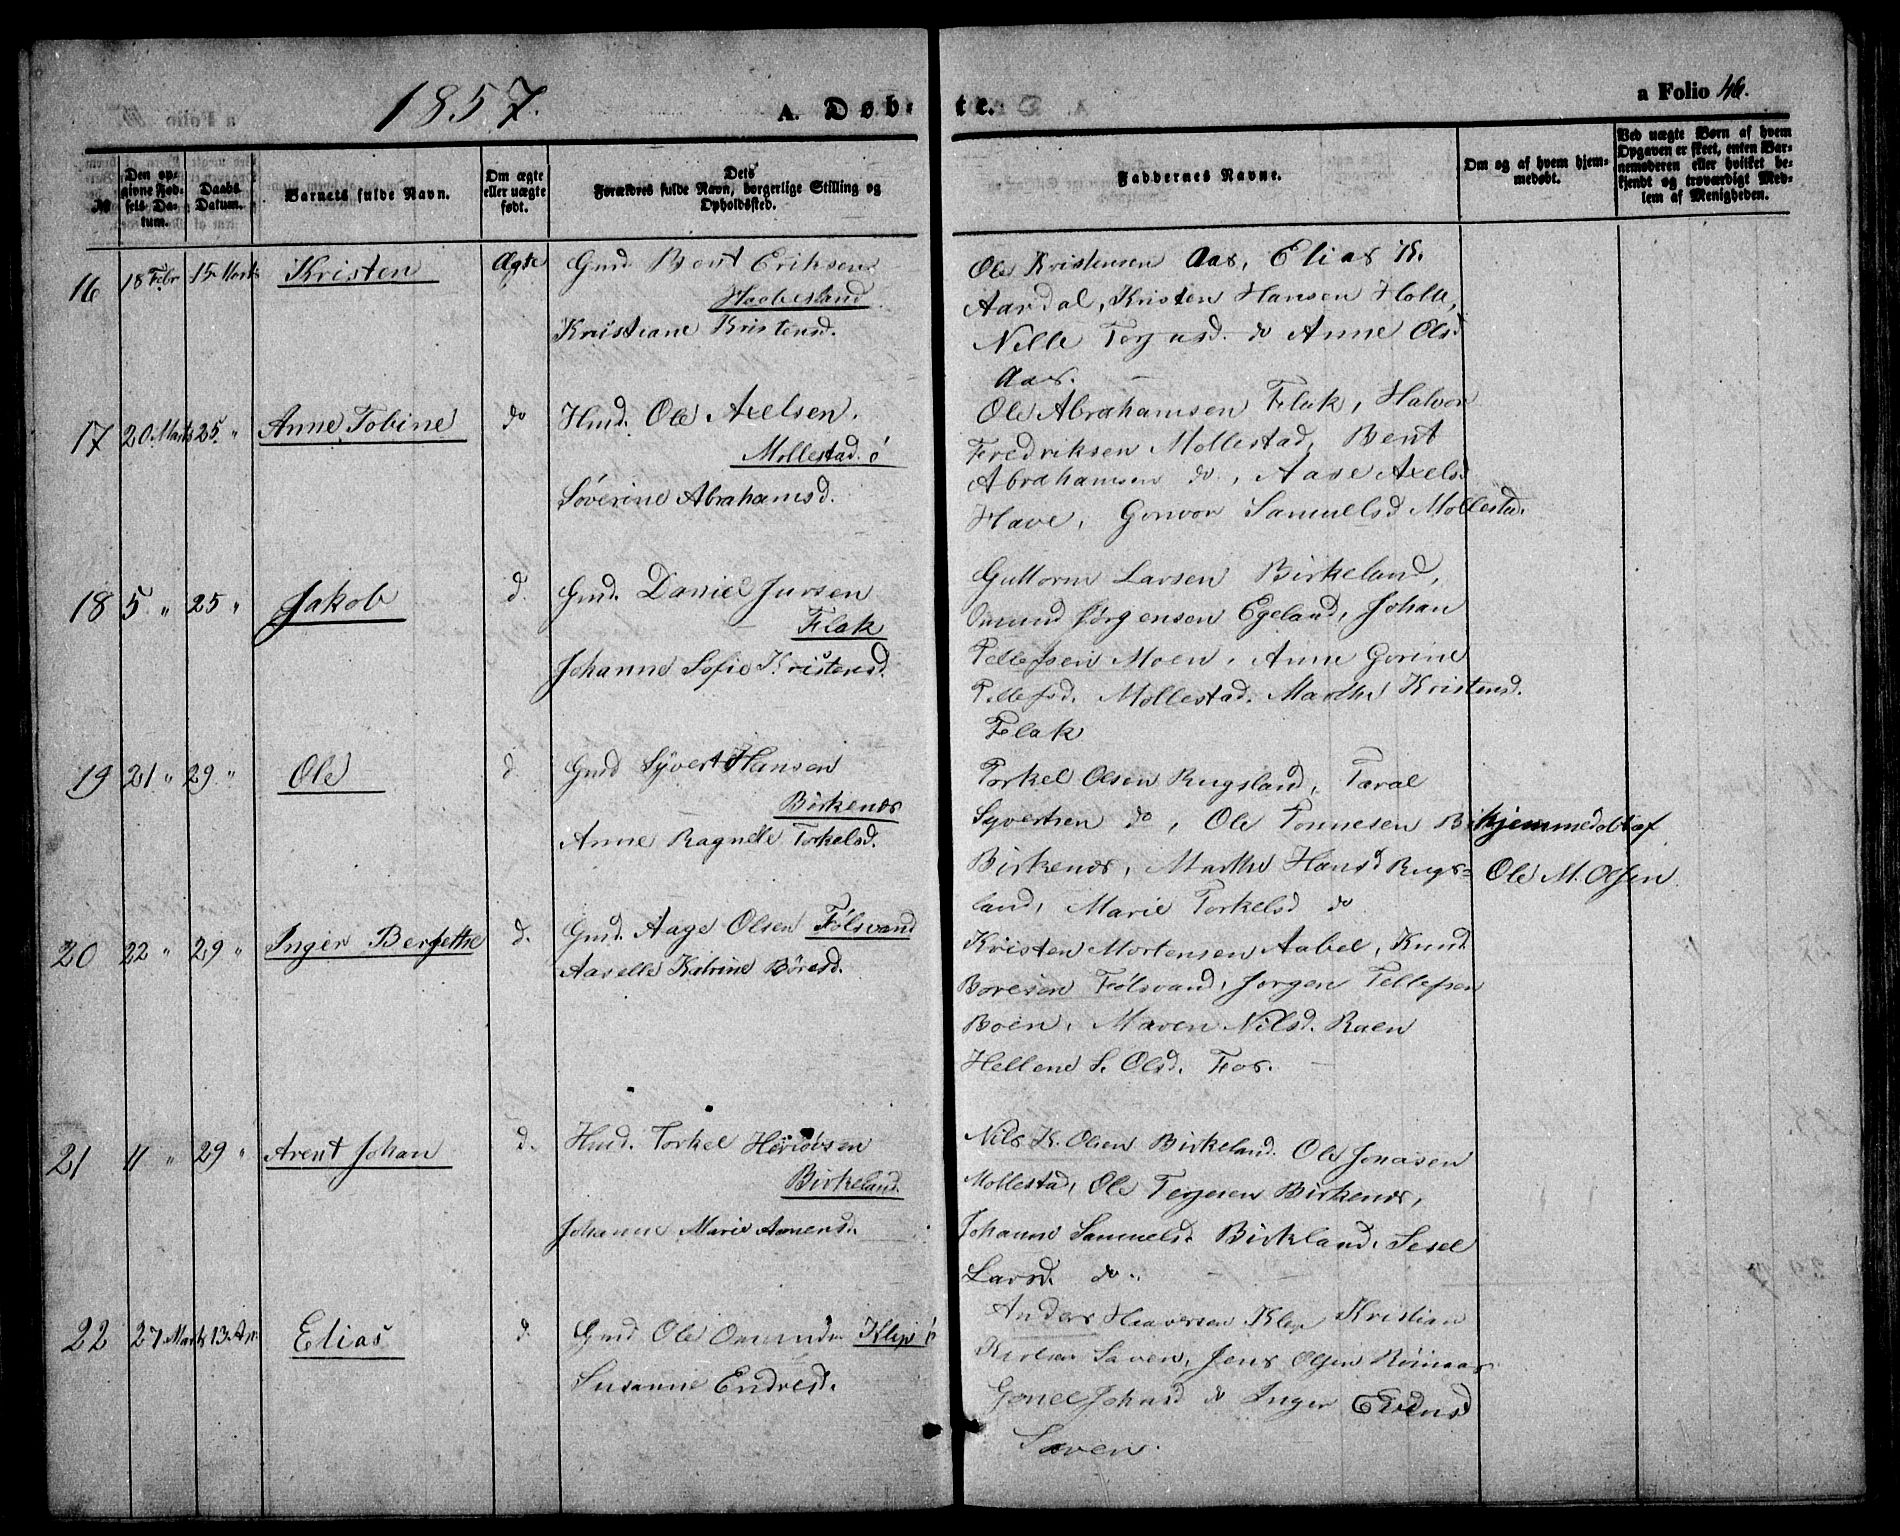 1857.
A. Døb-
te.
a Folio 46.
№
Den op-
givne Fød-
sels Da-
tum.
Daabs
Datum.
Barnets fulde Navn.
Om ægte
eller uægte
født.
Dets
Forældres fulde Navn, borgerlige Stilling og
Opholdssted.
Faddernes Navne.
Om og af hvem hjem-
medøbt.
Ved uægte Børn af hvem
Opgaven er skeet, enten Bar-
nemoderen eller hvilket be-
kjendt og troværdigt Med-
lem af Menigheden.
16 18 Febr 15 Marts Kristen Ægte Gmd Bent Eriksen
Haabesland
Kristiane Kristensd.
Ole Kristensen Aas, Elias K.
Aardal, Kristen Hansen Holte,
Nelle Terjusd. do Anne Olsd
Aas.
17 20 Marts 25 " Anne Tobine do Hmd. Ole Axelsen.
Mollestad ø
Søverine Abrahamsd.
Ole Abrahamsen Flak, Halvor
Fredriksen Mollestad, Bent
Abrahamsen do, Aase Axelsd
Have, Gunvor Samuelsd Mollestad.
18 5 " 25 " Jakob d. Gmd. Daniel Jursen
Flak
Johanne Sofie Kristensd.
Guttorm Larsen Birkeland,
Omund Jørgensen Egeland, Johan
Tellefsen Moen, Anne Gurine
Tellefsd. Mollestad. Marthe Kristensd.
Flak
19 21 " 29 " Ole d Gmd Syvert Hansen
Birkenæs
Anne Ragnelle Torkelsd.
Torkel Olsen Rugsland, Taral
Syvertsen do, Ole Tonnesen
Birkenæs, Marthe Hansd Rugs-
land, Marie Torkelsd do
Hjemmedøbt af
Ole M. Olsen
20 22 " 29 " Inger Bergethe d. Gmd. Aage Olsen Følsvand
Aaselle Katrine Børesd.
Kristen Mortensen Aabel, Knud
Boresen Følsvand, Jørgen Tellefsen
Boen, Maren Nilsd. Raen
Hellene S. Olsd. Fos.
21 11 " 29 " Arent Johan d. Hmd. Torkel Herlovsen
Birkeland
Johanne Marie Aanensd.
Nils K. Olsen Birkeland. Ole Jonasen
Mollestad, Ole Terjesen Birkenæs,
Johanne Samuelsd. Birkland, Sesel
Larsd. do.
22 27 Marts 13 Apr. Elias d. Gmd Ole Omundsen Klep ø
Susanne Endresd.
Anders Haaversen Klep Kristian
Saven, Jens Olsen
Gonel Johnsd do Inger Evensd
Saven.